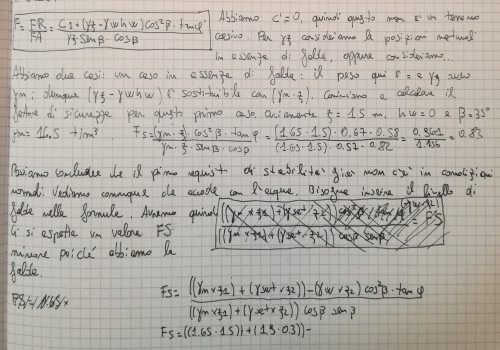 F = FR/FA = C1+(γz-γwhw)cos²β·tanφ' / γz senβ·cosβ
Abbiamo c'=0, quindi questo non è un terreno
coesivo. Per γz consideriamo la posizione naturale
in assenza di falda, oppure consideriamo.
Abbiamo due casi: un caso in assenza di falda: il peso qui è = a γz
γm; dunque (γz-γwhw) è sostituibile con (γm·z). Cominciamo a calcolare il
fattore di sicurezza per questo primo caso. Ovviamente z = 1.5 m, hw=0 e β=35°
γm= 16.5 t/m³ Fs = (γm·z)·cos²β·tanφ / γm·z·senβ·cosβ = (1.65·1.5)·0.67·0.58 / (1.65·1.5)·0.57·0.82 = 0.961 / 1.156 = 0.83
Possiamo concludere che il primo requisito di stabilità già non c'è in condizioni
normali. Vediamo comunque che accade con l'acqua. Bisogna inserire il livello di
falda nelle formule. Avremo quindi ((γm×z1)+(γsat×z2)) / ((γm×z1)+(γsat×z2)) cosβ senβ = FS
Ci si aspetta un valore FS
minore poiché abbiamo la
falda.
Fs = ((γm×z1)+(γsat×z2))-(γw×z2) cos²β·tanφ / ((γm×z1)+(γsat×z2)) cosβ senβ
Fs = ((1.65·1.5))+(1.9·0.3))-